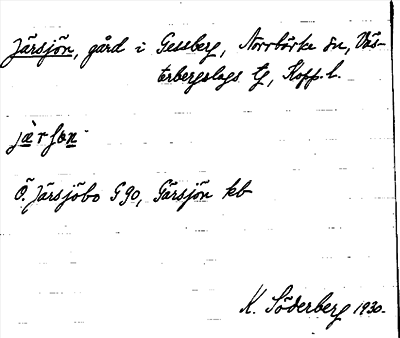 Järsjön, gård i Gessberg, Norrbärke sn, Väs-
terbergslags tg, Kopp. l.
Ö. Järsjöbo G 90, Gärsjön kb
K. Söderberg 1930.